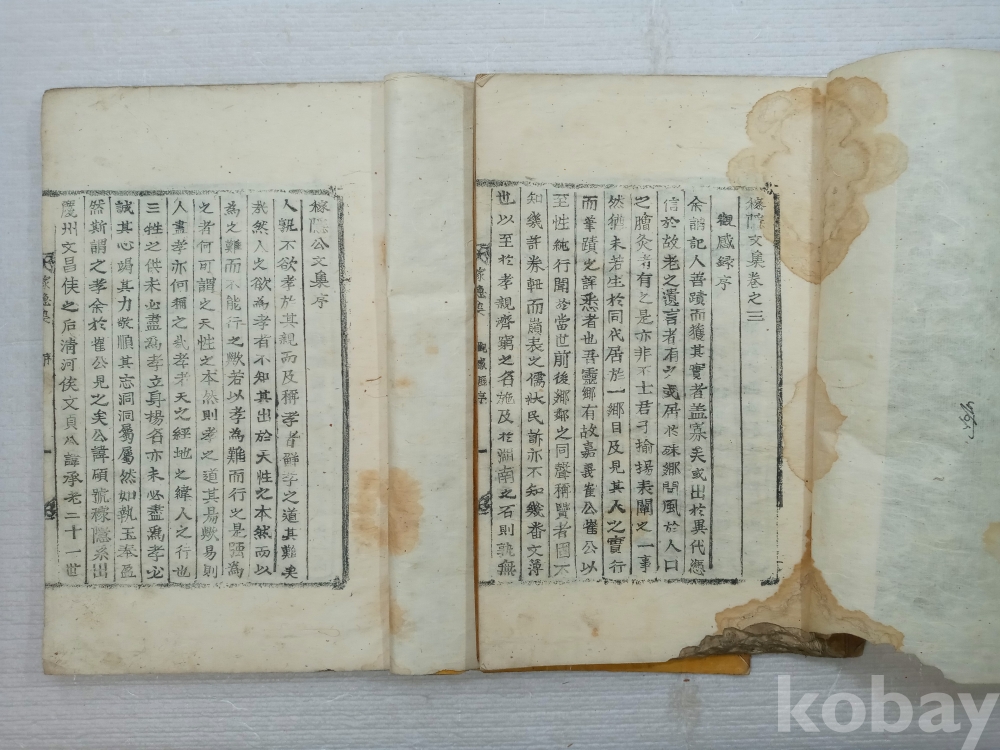 稼隱文集卷之三
觀感錄序
余謂記人善蹟而獲其實者盖寡矣或出於異代憑
信於故老之遺言者有以或居於殊鄉問風於人口
之膾炙者有之是亦非不士君子揄揚表闡之一事
然猶未若生於同代居於一鄉目及見其人之實行
而筆蹟之詳悉者也吾靈鄉有故嘉義崔公崔公以
至性純行聞於當世前後鄉鄰之同聲稱賢者固不
知幾許券軸而表之儒狀民訴亦不知幾番文簿
也以至於孝親濟窮之名施及於湖南之石則孰無
觀感錄序
稼隱公文集序
人孰不欲孝於其親而及稱孝者鮮孝之道其難矣
哉然人之欲爲孝者不知其出於天性之本然而以
為之難而不能行之歟若以孝為難而行之是强為
之者何可謂之天性之本然則孝之道其易歟易則
人盡孝亦何稱之哉孝者天之經地之緯人之行也
三牲之供未必盡爲孝立身揚名亦未必盡爲孝必
誠其心竭其力敬順其志洞洞屬屬然如執玉奉盈
然斯謂之孝余於崔公見之矣公諱碩號稼隱系出
慶州文昌侯之后清河侯文貞公諱承老二十一世
稼隱集 序
kobay